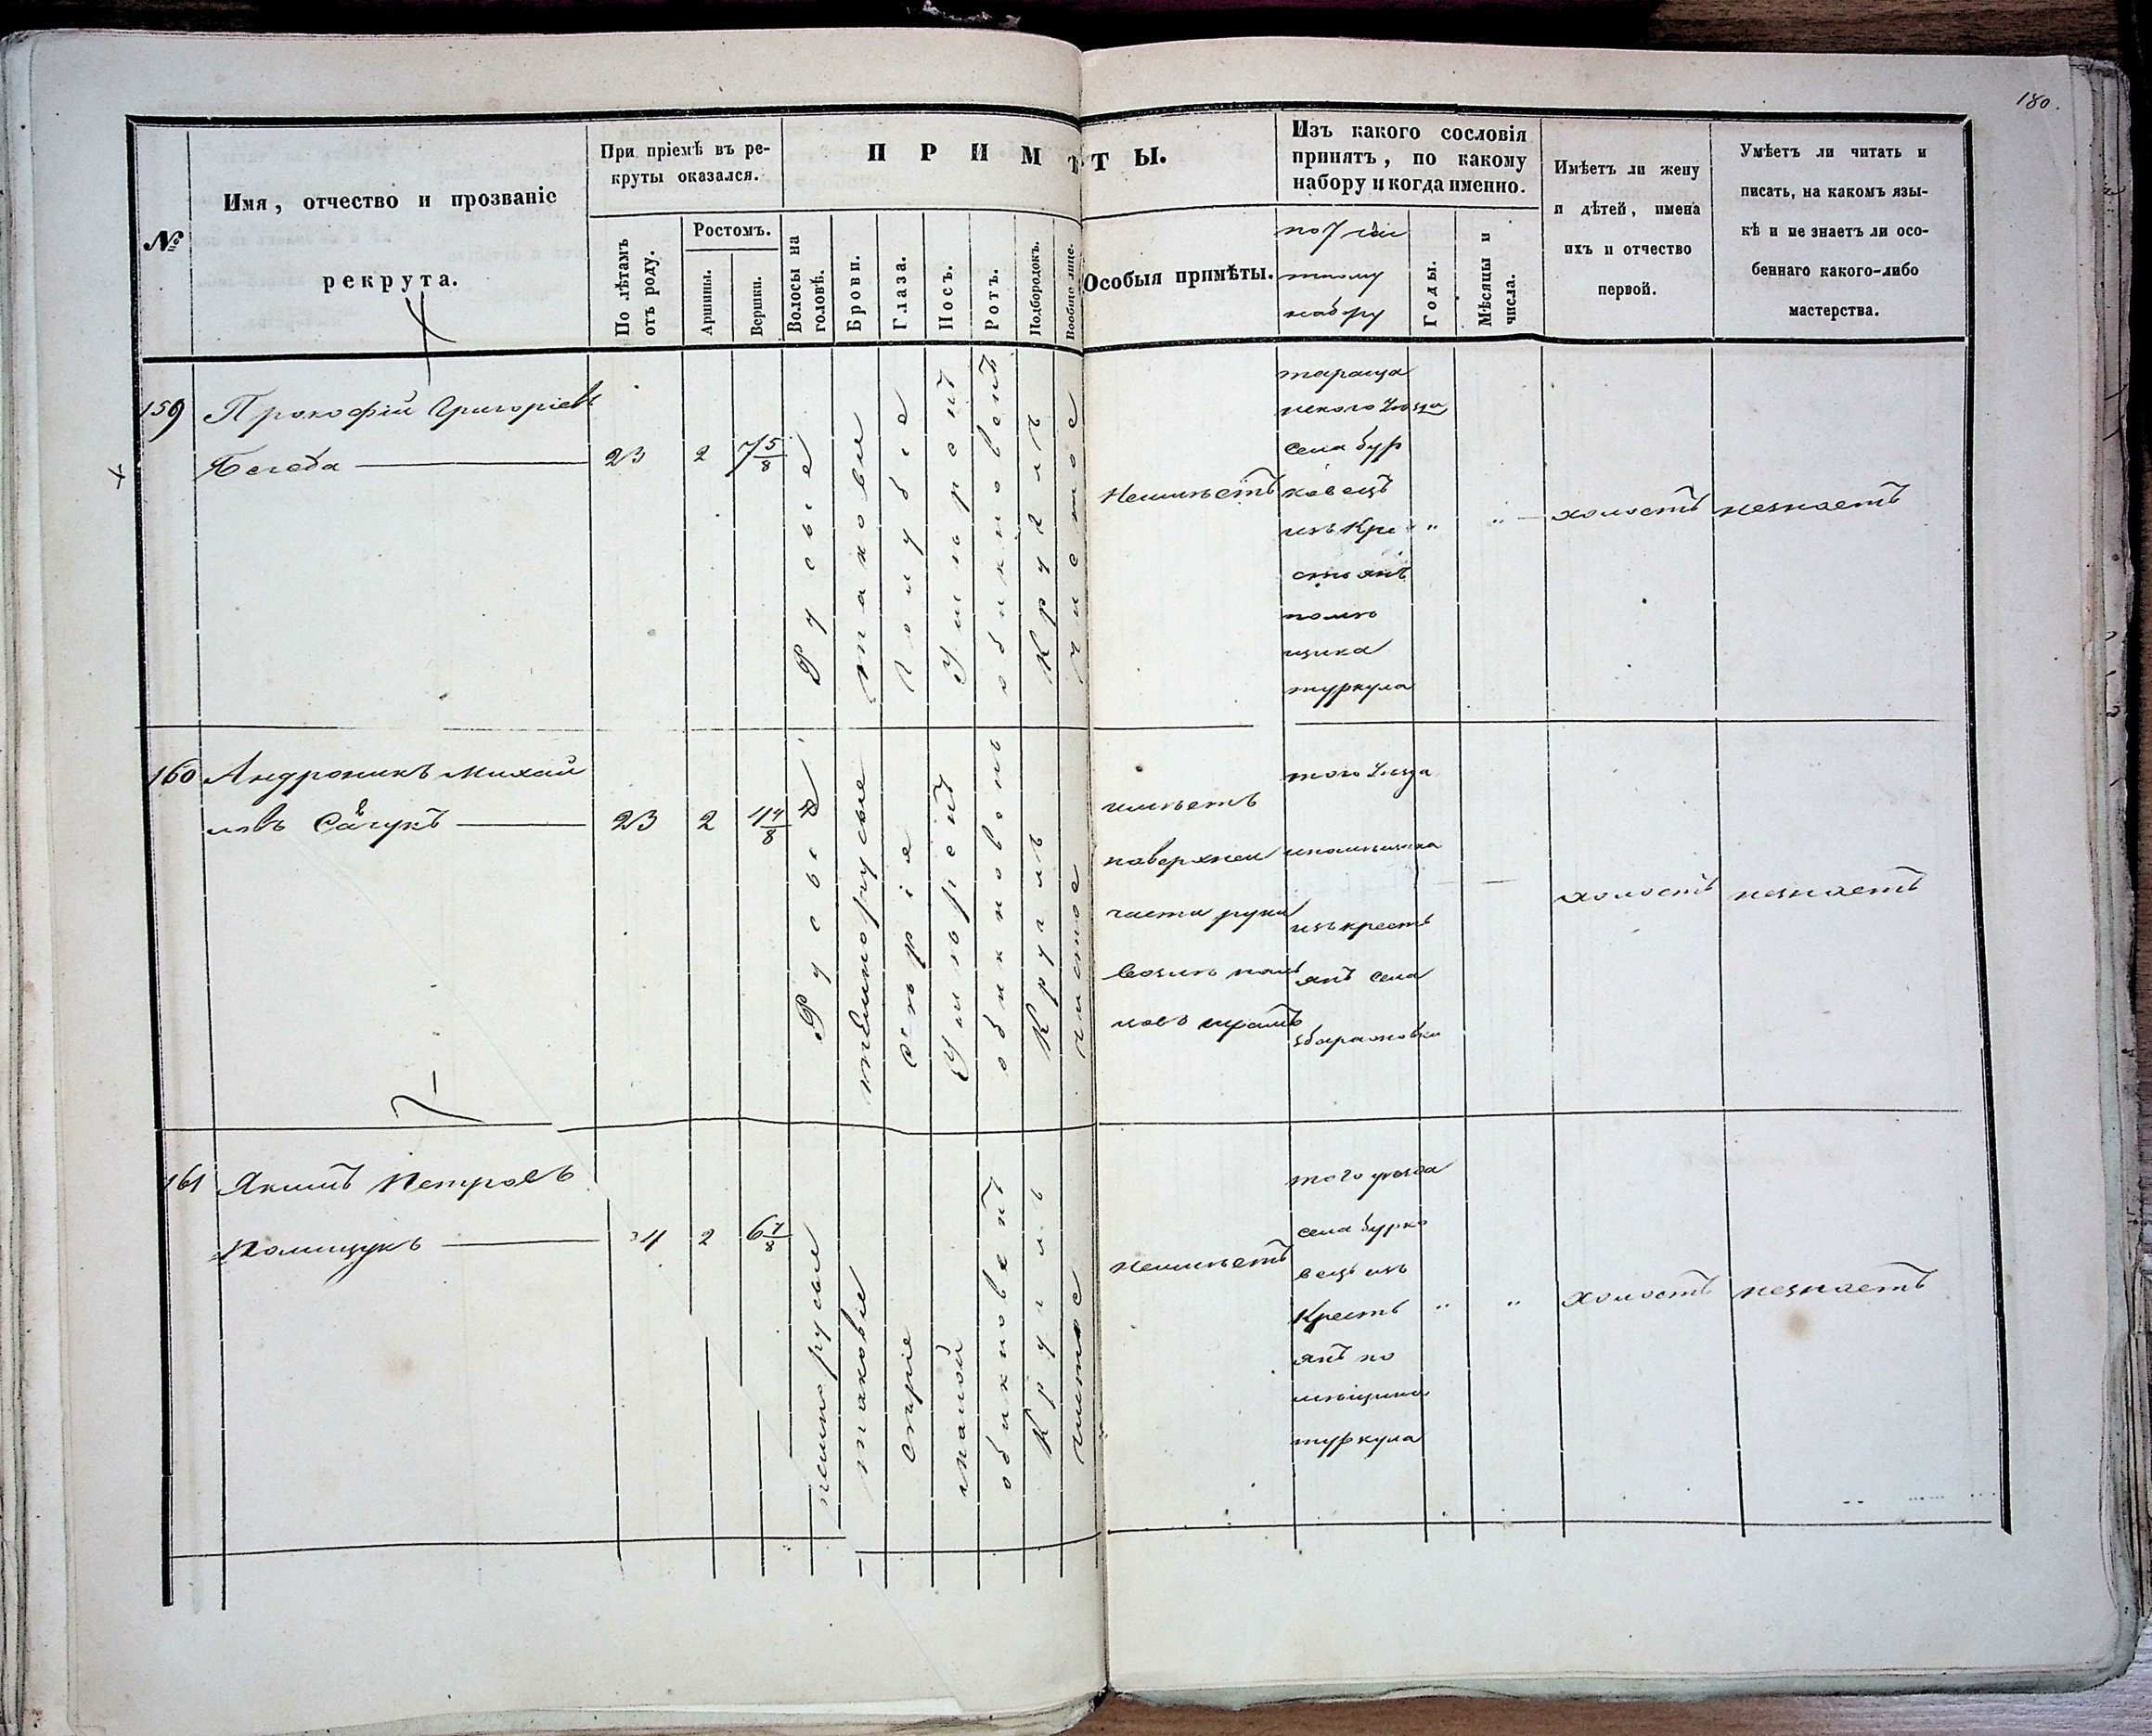 180.
№
Имя, отчество и прозваніе
рекрута.
При пріемѣ въ ре-
круты оказался.
По лѣтамъ
отъ роду.
Ростомъ.
Аршины.
Вершки.
ПРИМѢТЫ.
Волосы на
головѣ.
Брови.
Глаза.
Носъ.
Ротъ.
Подбородокъ.
Вообще лице.
Особыя примѣты.
Изъ какого сословія
принятъ, по какому
набору и когда именно.
по 7
набору
Годы.
Мѣсяцы и
числа.
Имѣетъ ли жену
и дѣтей, имена
ихъ и отчество
первой.
Умѣетъ ли читать и
писать, на какомъ язы-
кѣ и не знаетъ ли осо-
беннаго какого-либо
мастерства.
159
Прокофій Григоріевъ
23
2
7 5/8
Русые
таковы
Голубые
Умѣрень
обикновень
Круглъ
Чистое
Неимѣетъ
тараща
нского Уезда
села бур
ковецъ
изъ Кре
стьянъ
помѣ
щика
туркула
"
"
холостъ
незнаетъ
160
Андроникъ Михай
ловъ
23
2
4 4/8
Русые
темнорусые
Сѣріе
Умѣрень
обикновень
Круглъ
чистое
имѣетъ
наверхней
части руки
шрамъ
того Уезда
ипомѣщика
изъ крестъ
янъ села
холостъ
незнаетъ
161
Якимъ Петровъ
Полищукъ
2
6 7/8
темнорусые
таковые
Сѣріе
малой
обикновень
Круглъ
чистое
неимѣетъ
того уезда
села бурко
вецъ изъ
Крестъ
янъ по
мѣщика
туркула
"
"
Холостъ
незнаетъ